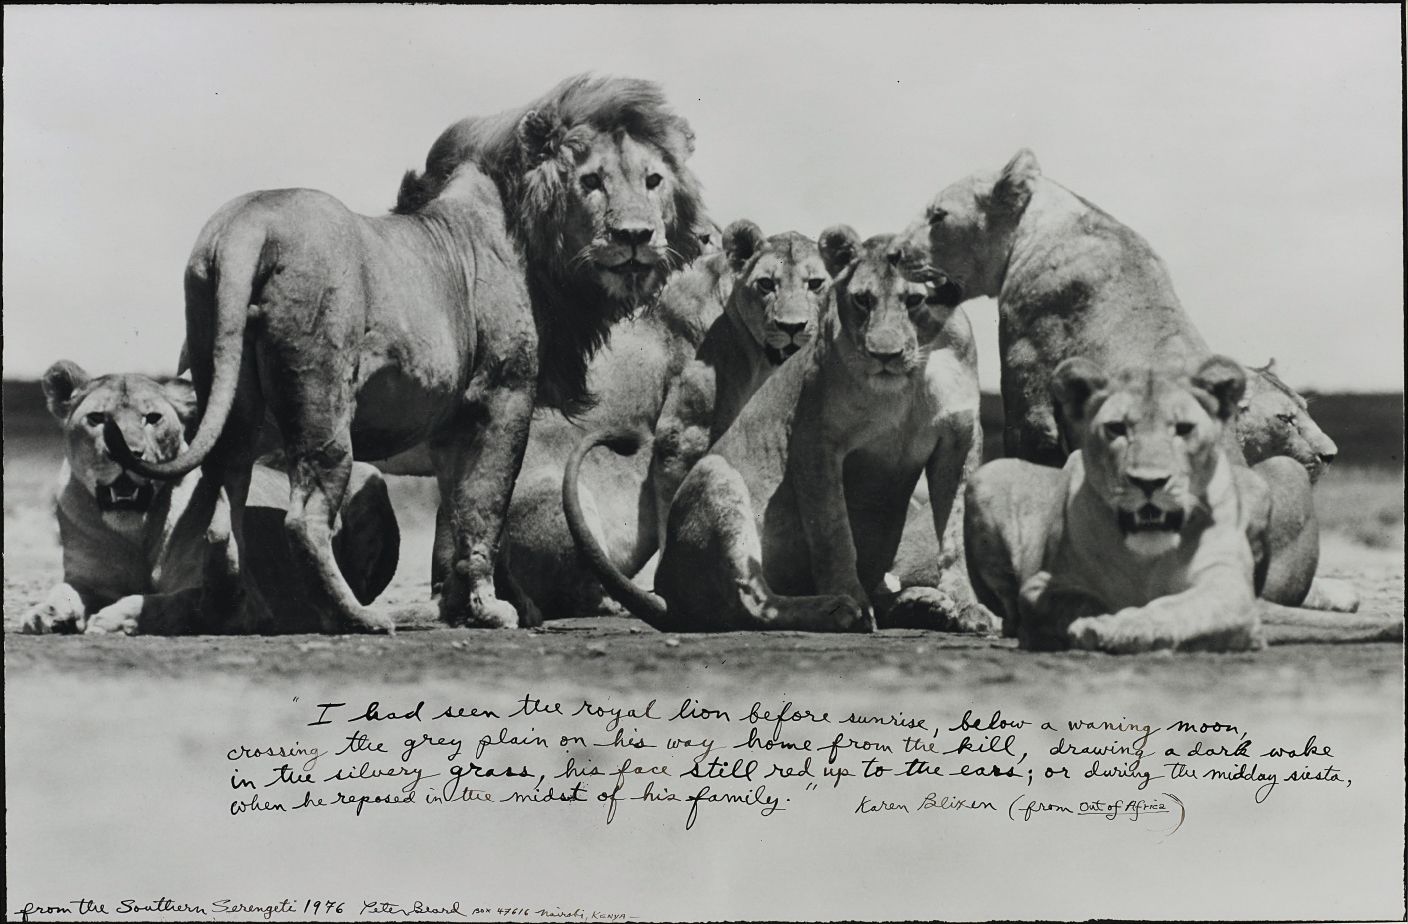 "I had seen the royal lion before sunrise, below a waning moon,
crossing the grey plain on his way home from the kill, drawing a dark wake
in the silvery grass, his face still red up to the ears; or during the midday siesta,
when he reposed in the midst of his family."   Karen Blixen (from Out of Africa)
from the Southern Serengeti 1976 Peter Beard BOX 47616 Nairobi, KENYA –